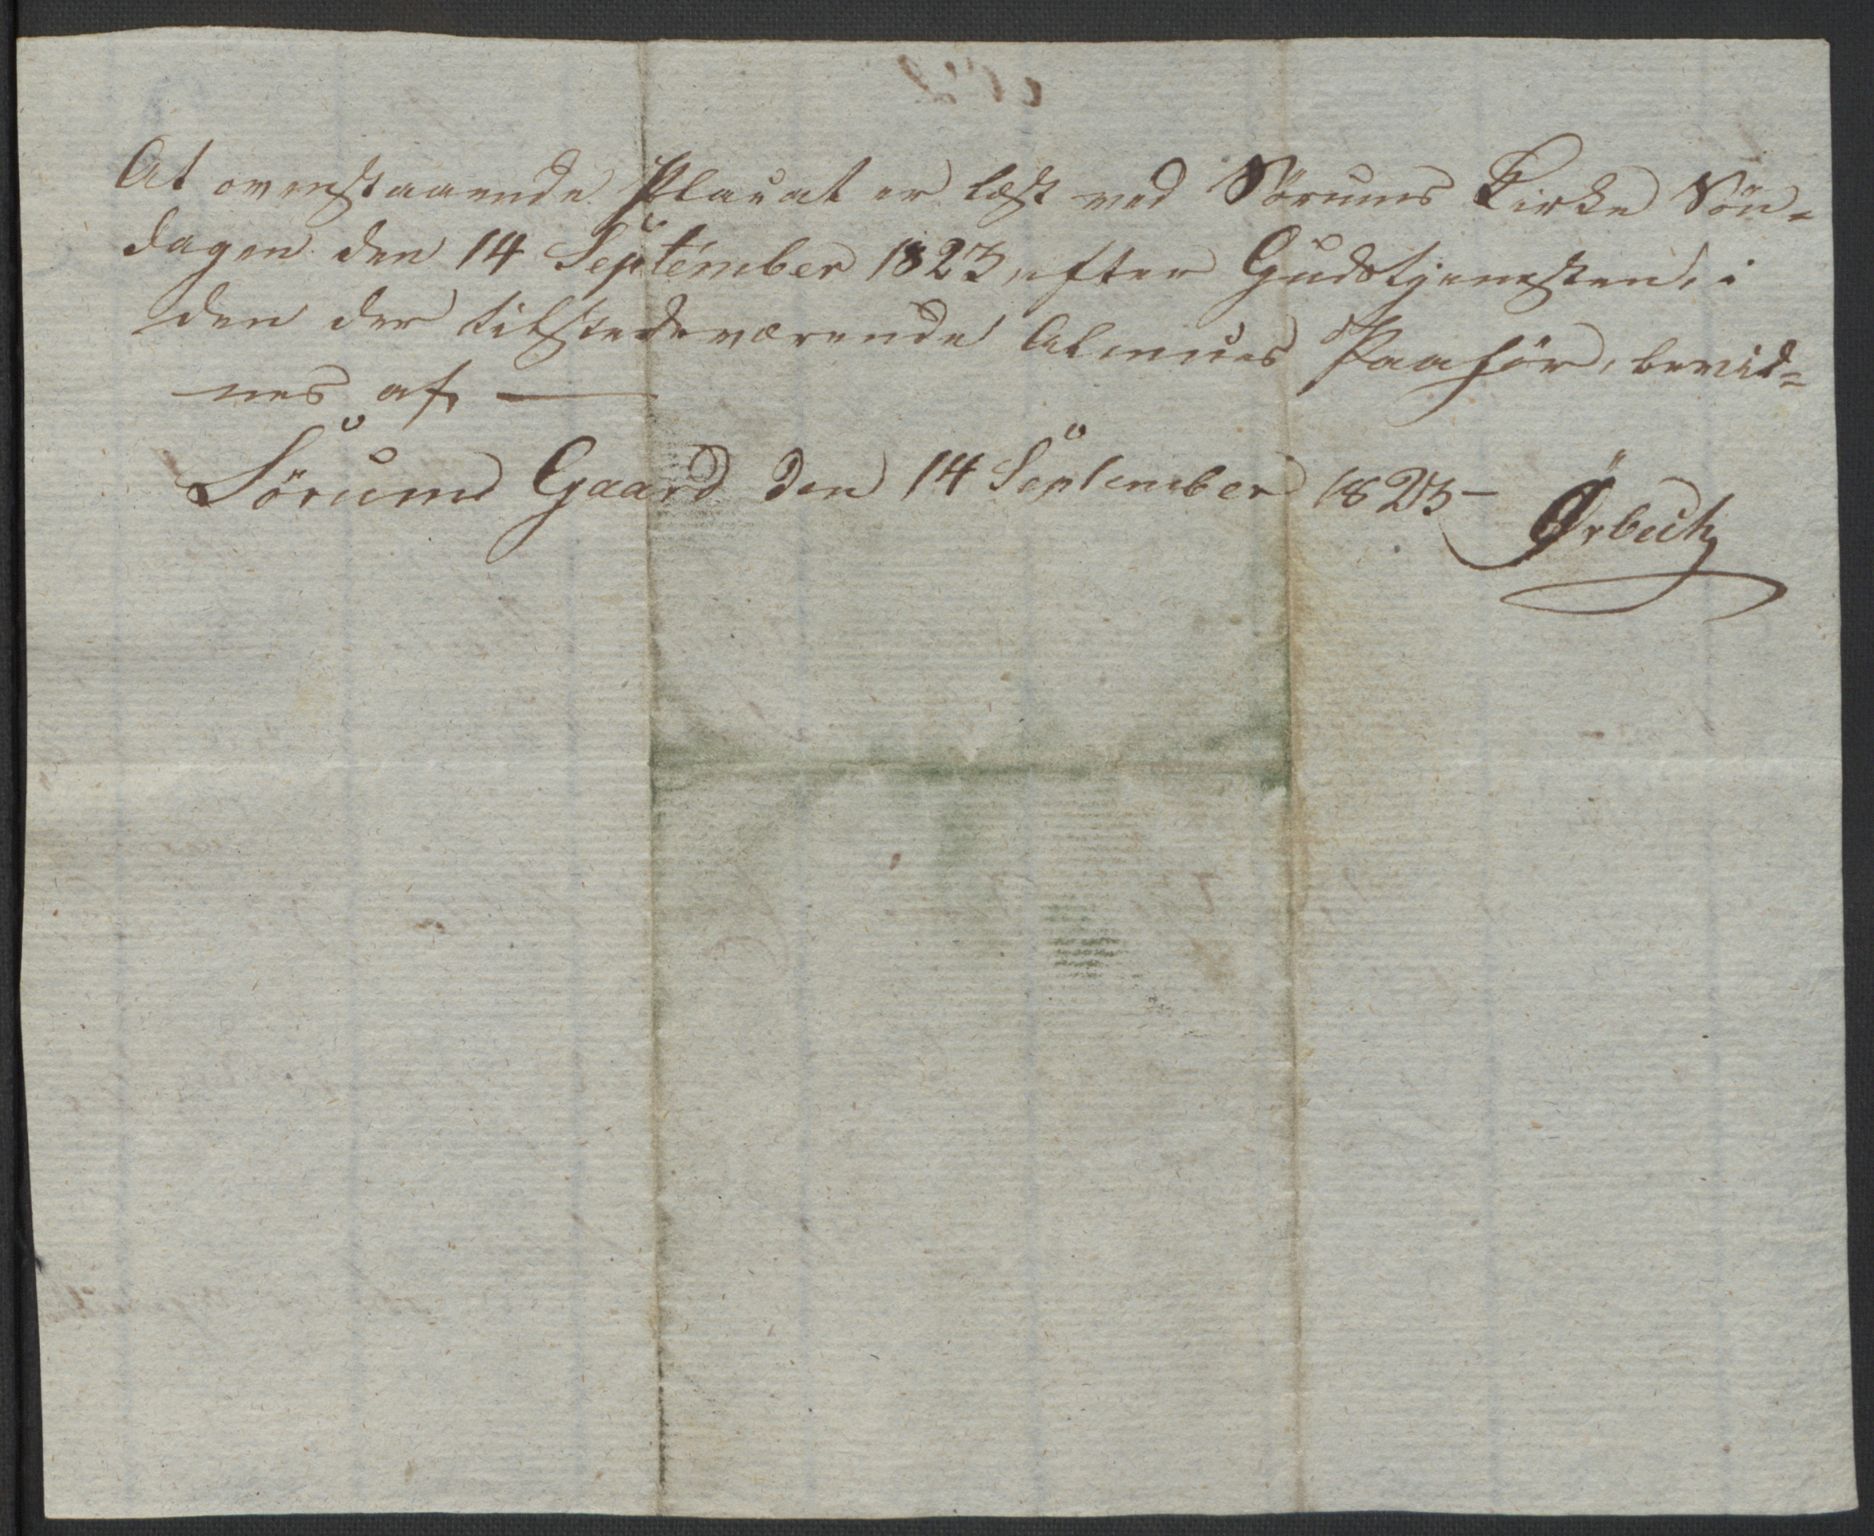 At ovenstaaende Placat er læst ved Sörums Kirke Sön-
dagen den 14 September 1823, efter Gudstjenesten, i
den der tilstedeværende Almues Paahör, bevid-
nes af
Sörums Gaard den 14 September 1823 - Ørbech